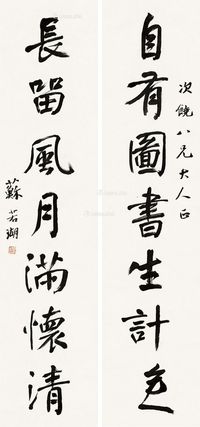 次饒八兄大人正
自有圖書生計足
長留風月滿懷清
蘇若瑚